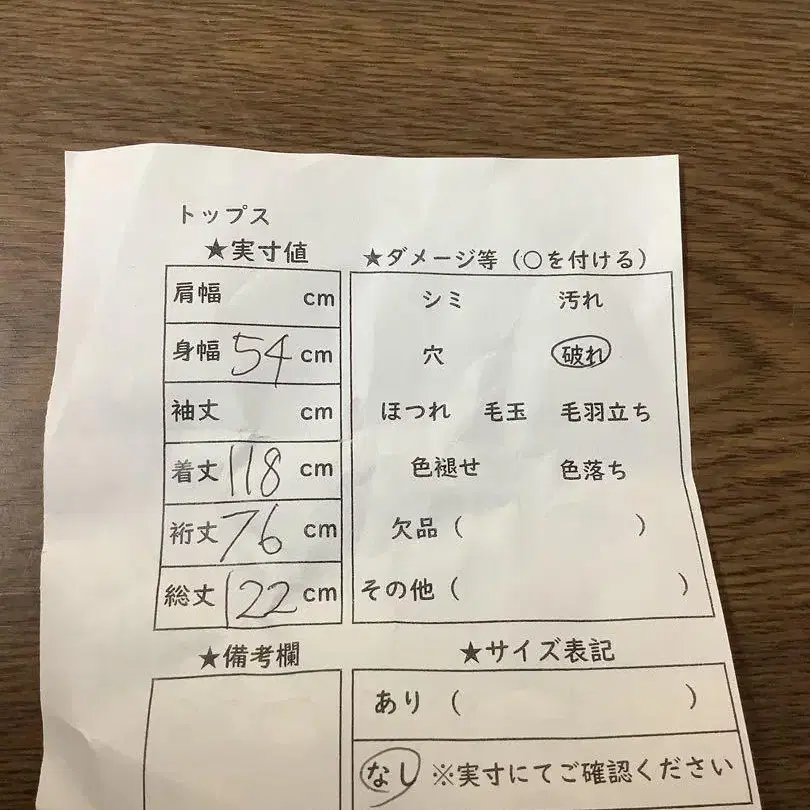 トップス
★実寸値
肩幅 cm
身幅 54 cm
袖丈 cm
着丈 118 cm
裄丈 76 cm
総丈 122 cm
★備考欄
★ダメージ等（○を付ける）
シミ 汚れ
穴 破れ
ほつれ 毛玉 毛羽立ち
色褪せ 色落ち
欠品（ ）
その他（ ）
★サイズ表記
あり（ ）
なし ※実寸にてご確認ください